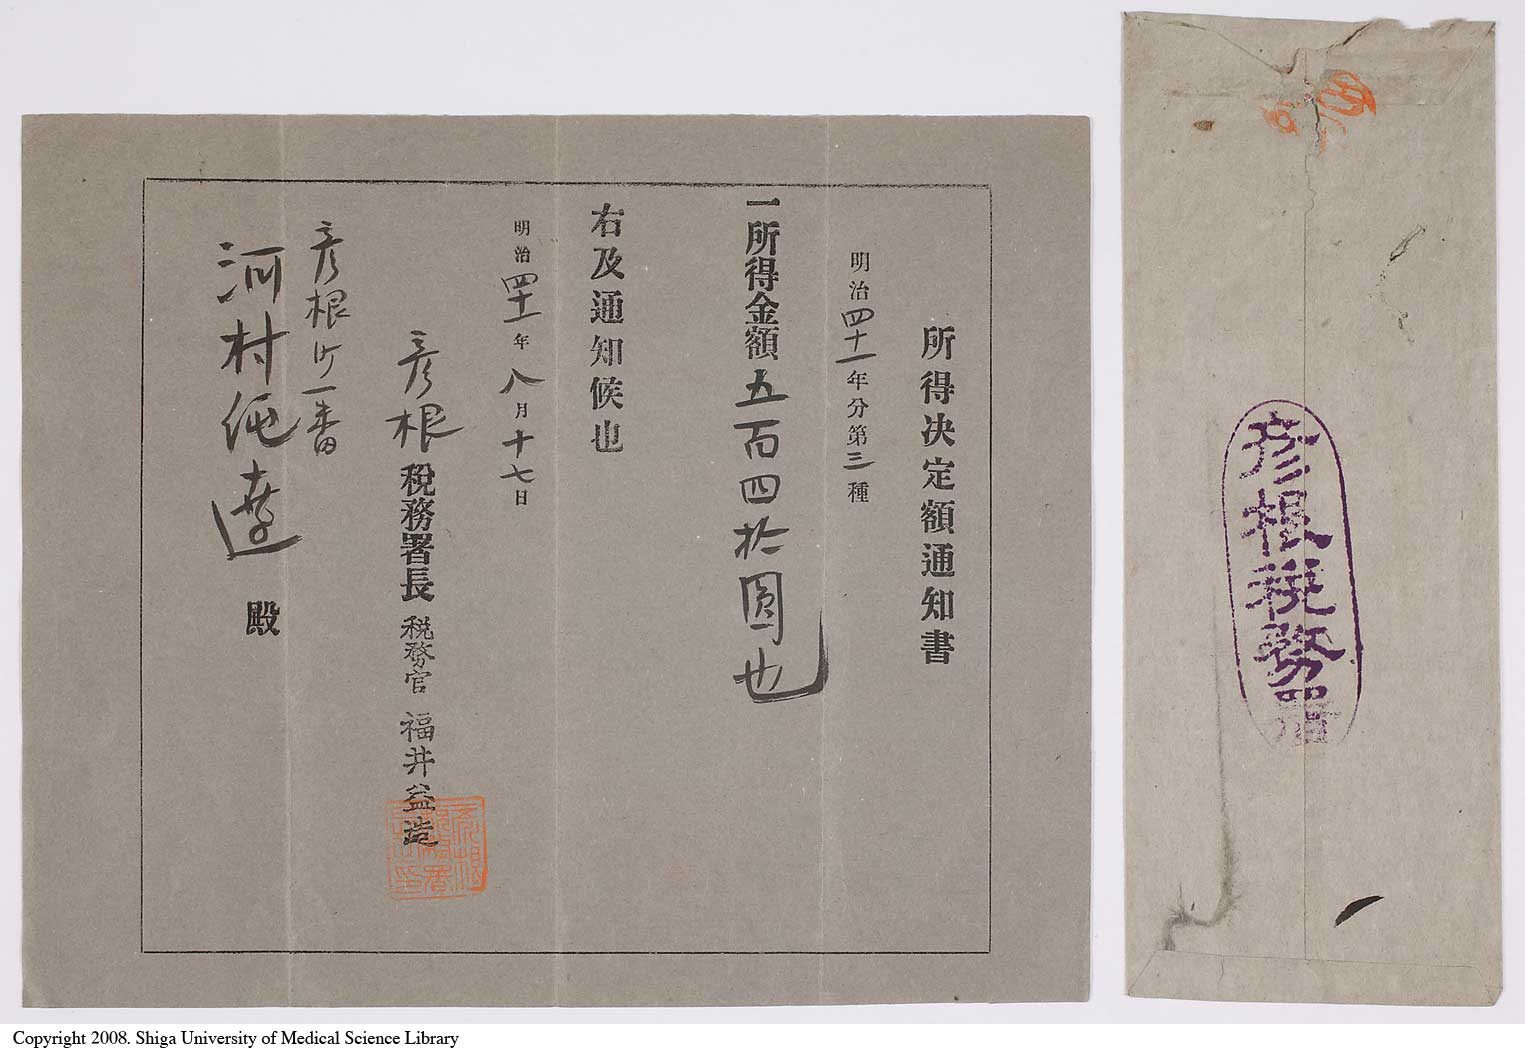 所得決定額通知書
明治四十一年分第三種
一所得金額五百四拾圓也
右及通知候也
明治四十一年八月十七日
彦根税務署長 税務官 福井益造
彦根町一番
河村純達 殿
彦根税務署
Copyright 2008. Shiga University of Medical Science Library